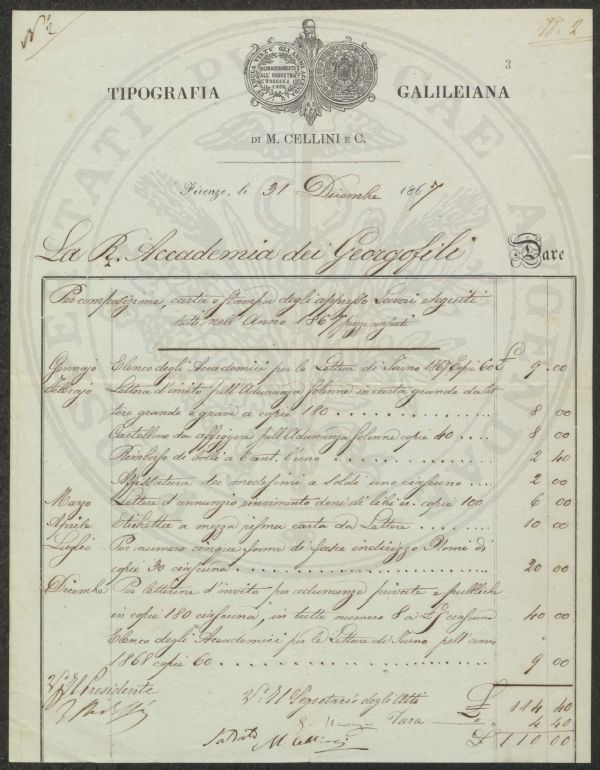 N° 2
3
TIPOGRAFIA GALILEIANA
DI M. CELLINI E C.
Firenze, li 31 Dicembre 1867
La R. Accademia dei Georgofili Dare
Per composizione, carta e stampa degli appresso Lavori eseguiti
tutti nell'Anno 1867 prezzi
Gennajo Elenco degli Accademici per le Letture di Turno 1867 Copie 60 £ 9 00
Febbrajo Lettera d'invito pell'Adunanza Solenne in carta grande da let
tere grande e grave a copie 180 8 00
Cartellone da affiggere pell'Adunanza Solenne copie 40 8 00
Rimborso di bolli a Cent. l'uno 2 40
Affissatura dei medesimi a soldi uno ciascuno 2 00
Marzo Lettere d'annunzio ricevimento doni di libri ec. copie 100 6 00
Aprile Etichetta a mezza risma carta da Lettere 10 00
Luglio Per numero cinque forme di fasce indirizzo Nomi di
copie 30 ciascuna 20 00
Dicembe Per letterina d'invito per adunanze private e pubbliche
in copie 180 ciascuna, in tutte numero 8 a £ 5 ciascuna 40 00
Elenco degli Accademici per le Letture di Turno pell'anno
1868 copie 60 9 00
V° Il Presidente
V° Il Segretario degli Atti £ 114 40
Tara 4 40
Saldato M. Cellini £ 110 00